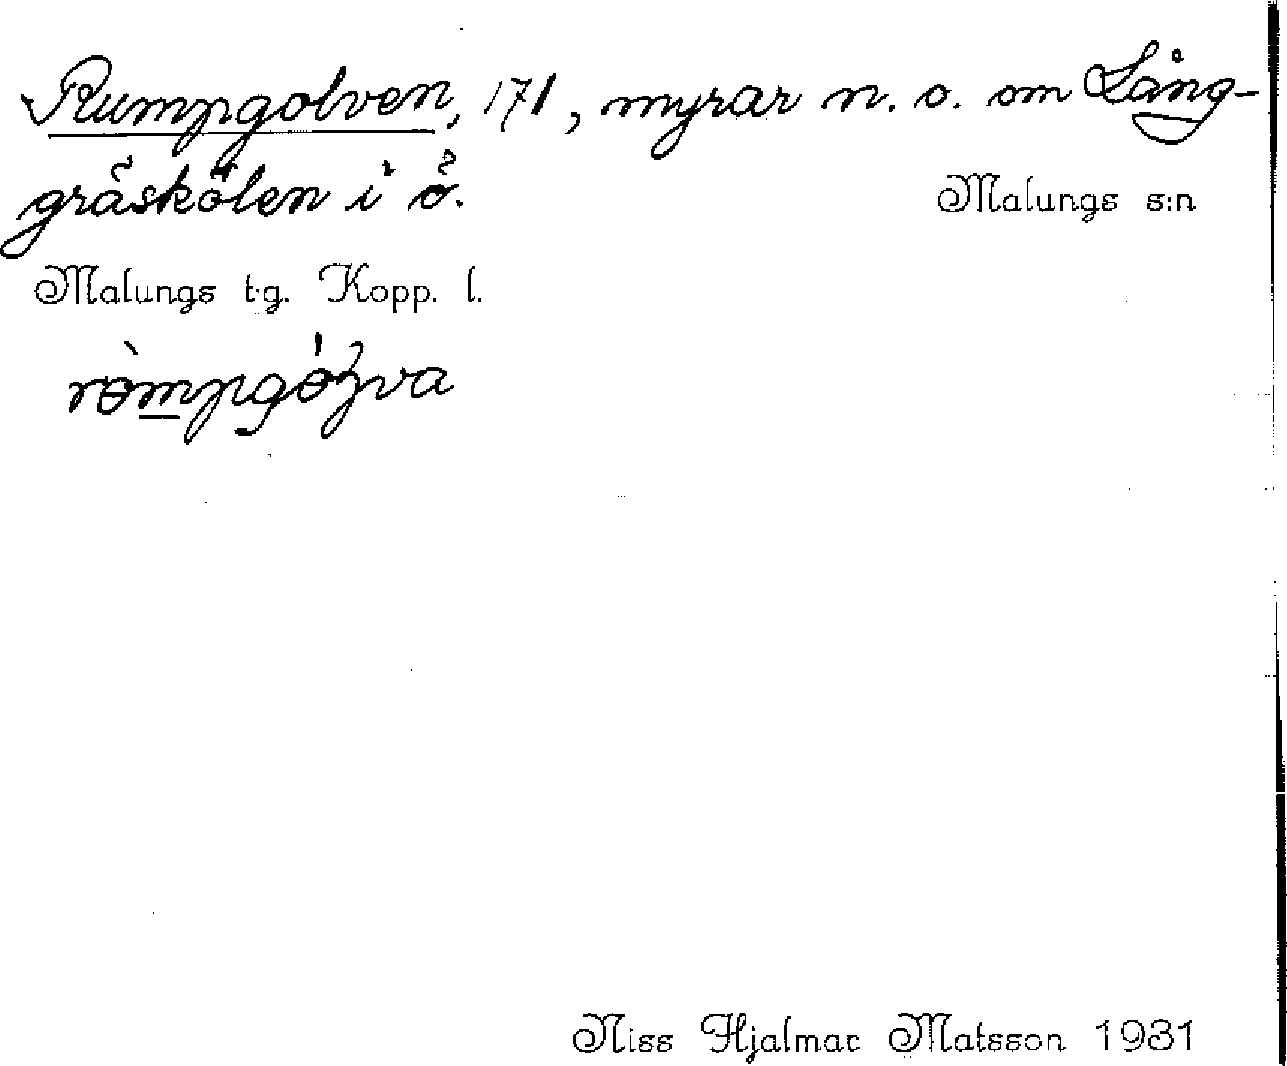 Rumpgolven, 171, myrar n. o. om Lång-
gräskölen i ö.
Malungs s:n
Malungs t:g. Kopp. l.
ròmpgóɮva
Niss Hjalmar Matsson 1931